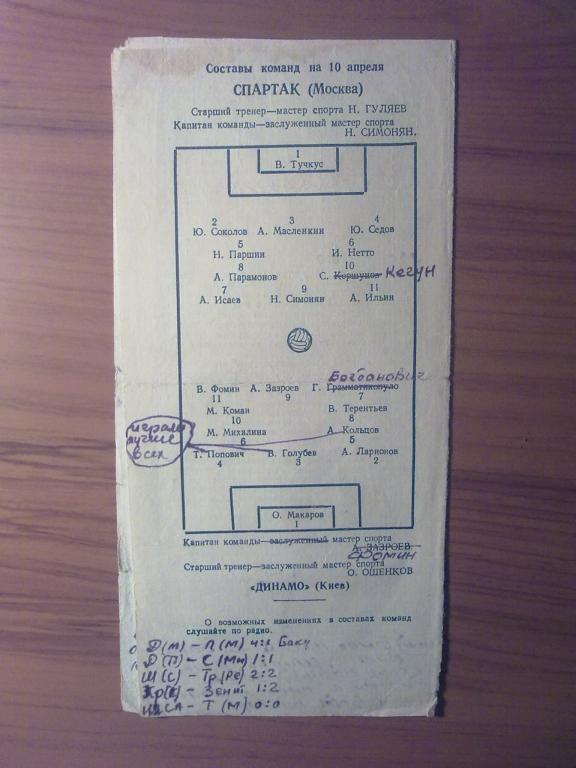 Составы команд на 10 апреля
СПАРТАК (Москва)
Старший тренер—мастер спорта Н. ГУЛЯЕВ
Капитан команды—заслуженный мастер спорта
Н. СИМОНЯН.
1
В. Тучкус
2 3 4
Ю. Соколов А. Масленкин Ю. Седов
5 6
Н. Паршин И. Нетто
8 10
А. Парамонов С. Коршунов Кегун
7 9 11
А. Исаев Н. Симонян А. Ильин
Богданович
В. Фомин А. Зазроев Г. Грамматикопуло
11 9 7
М. Коман В. Терентьев
10 8
играли
лучше
всех
М. Михалина А. Кольцов
6 5
Т. Попович В. Голубев А. Ларионов
4 3 2
О. Макаров
1
Капитан команды—заслуженный мастер спорта
А. ЗАЗРОЕВ.
Фомин
Старший тренер—заслуженный мастер спорта
О. ОШЕНКОВ
«ДИНАМО» (Киев)
О возможных изменениях в составах команд
слушайте по радио.
Д(М) – Л(М) 4:1 Баку
Д(Т) – С(Мн) 1:1
Ш(С) – Тр(Рс) 2:2
– Зенит 1:2
ЦДСА – Т(М) 0:0